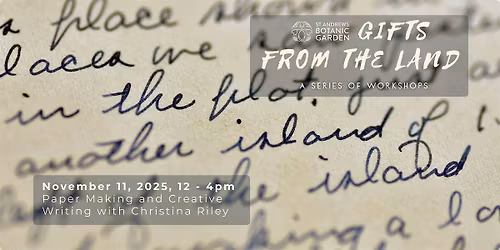 place show
places we
in the plot, just a
another island of
the island
making a lo
ST ANDREWS
BOTANIC
GARDEN
GIFTS
FROM THE LAND
A SERIES OF WORKSHOPS
November 11, 2025, 12 - 4pm
Paper Making and Creative
Writing with Christina Riley